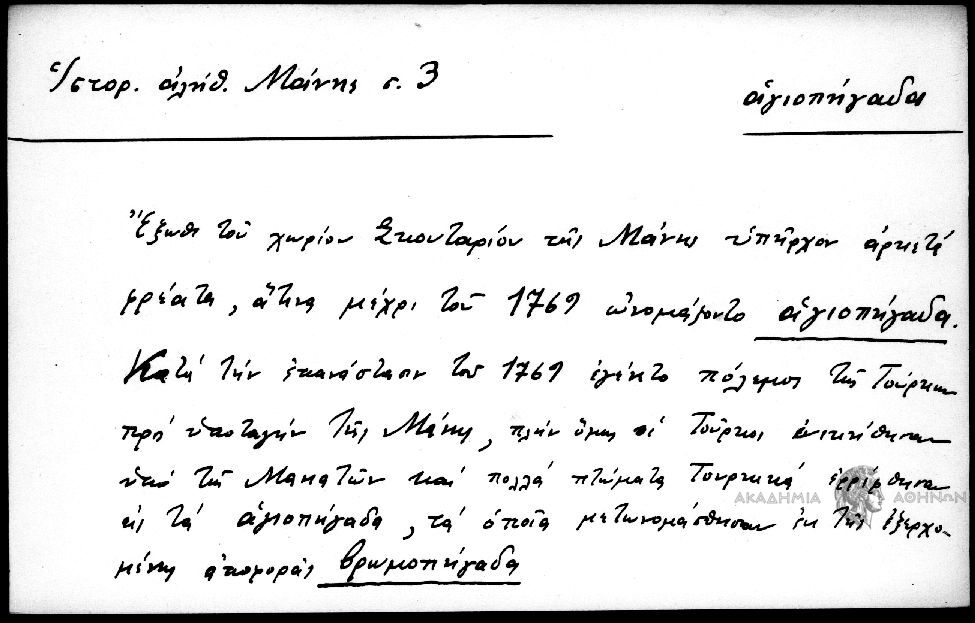 Ἱστορ. ἀλήθ. Μάνης σ. 3
ἁγιοπήγαδα
Ἔξωθι τοῦ χωρίου Σκουταρίου τῆς Μάνης ὑπῆρχον ἀρκετὰ
φρέατα, ἅτινα μέχρι τοῦ 1769 ὠνομάζοντο ἁγιοπήγαδα.
Κατὰ τὴν ἐπανάστασιν τοῦ 1769 ἐγένετο πόλεμος τῆς Τουρκίας
πρὸς ὑποταγὴν τῆς Μάνης, πλὴν ὅμως οἱ Τοῦρκοι ἐνικήθησαν
ὑπὸ τῶν Μανιατῶν καὶ πολλὰ πτώματα Τουρκικὰ ἐρρίφθησαν
εἰς τὰ ἁγιοπήγαδα, τὰ ὁποῖα μετωνομάσθησαν ἐκ τῆς ἐξερχο-
μένης ἀποφορᾶς βρωμοπήγαδα
ΑΚΑΔΗΜΙΑ ΑΘΗΝΩΝ